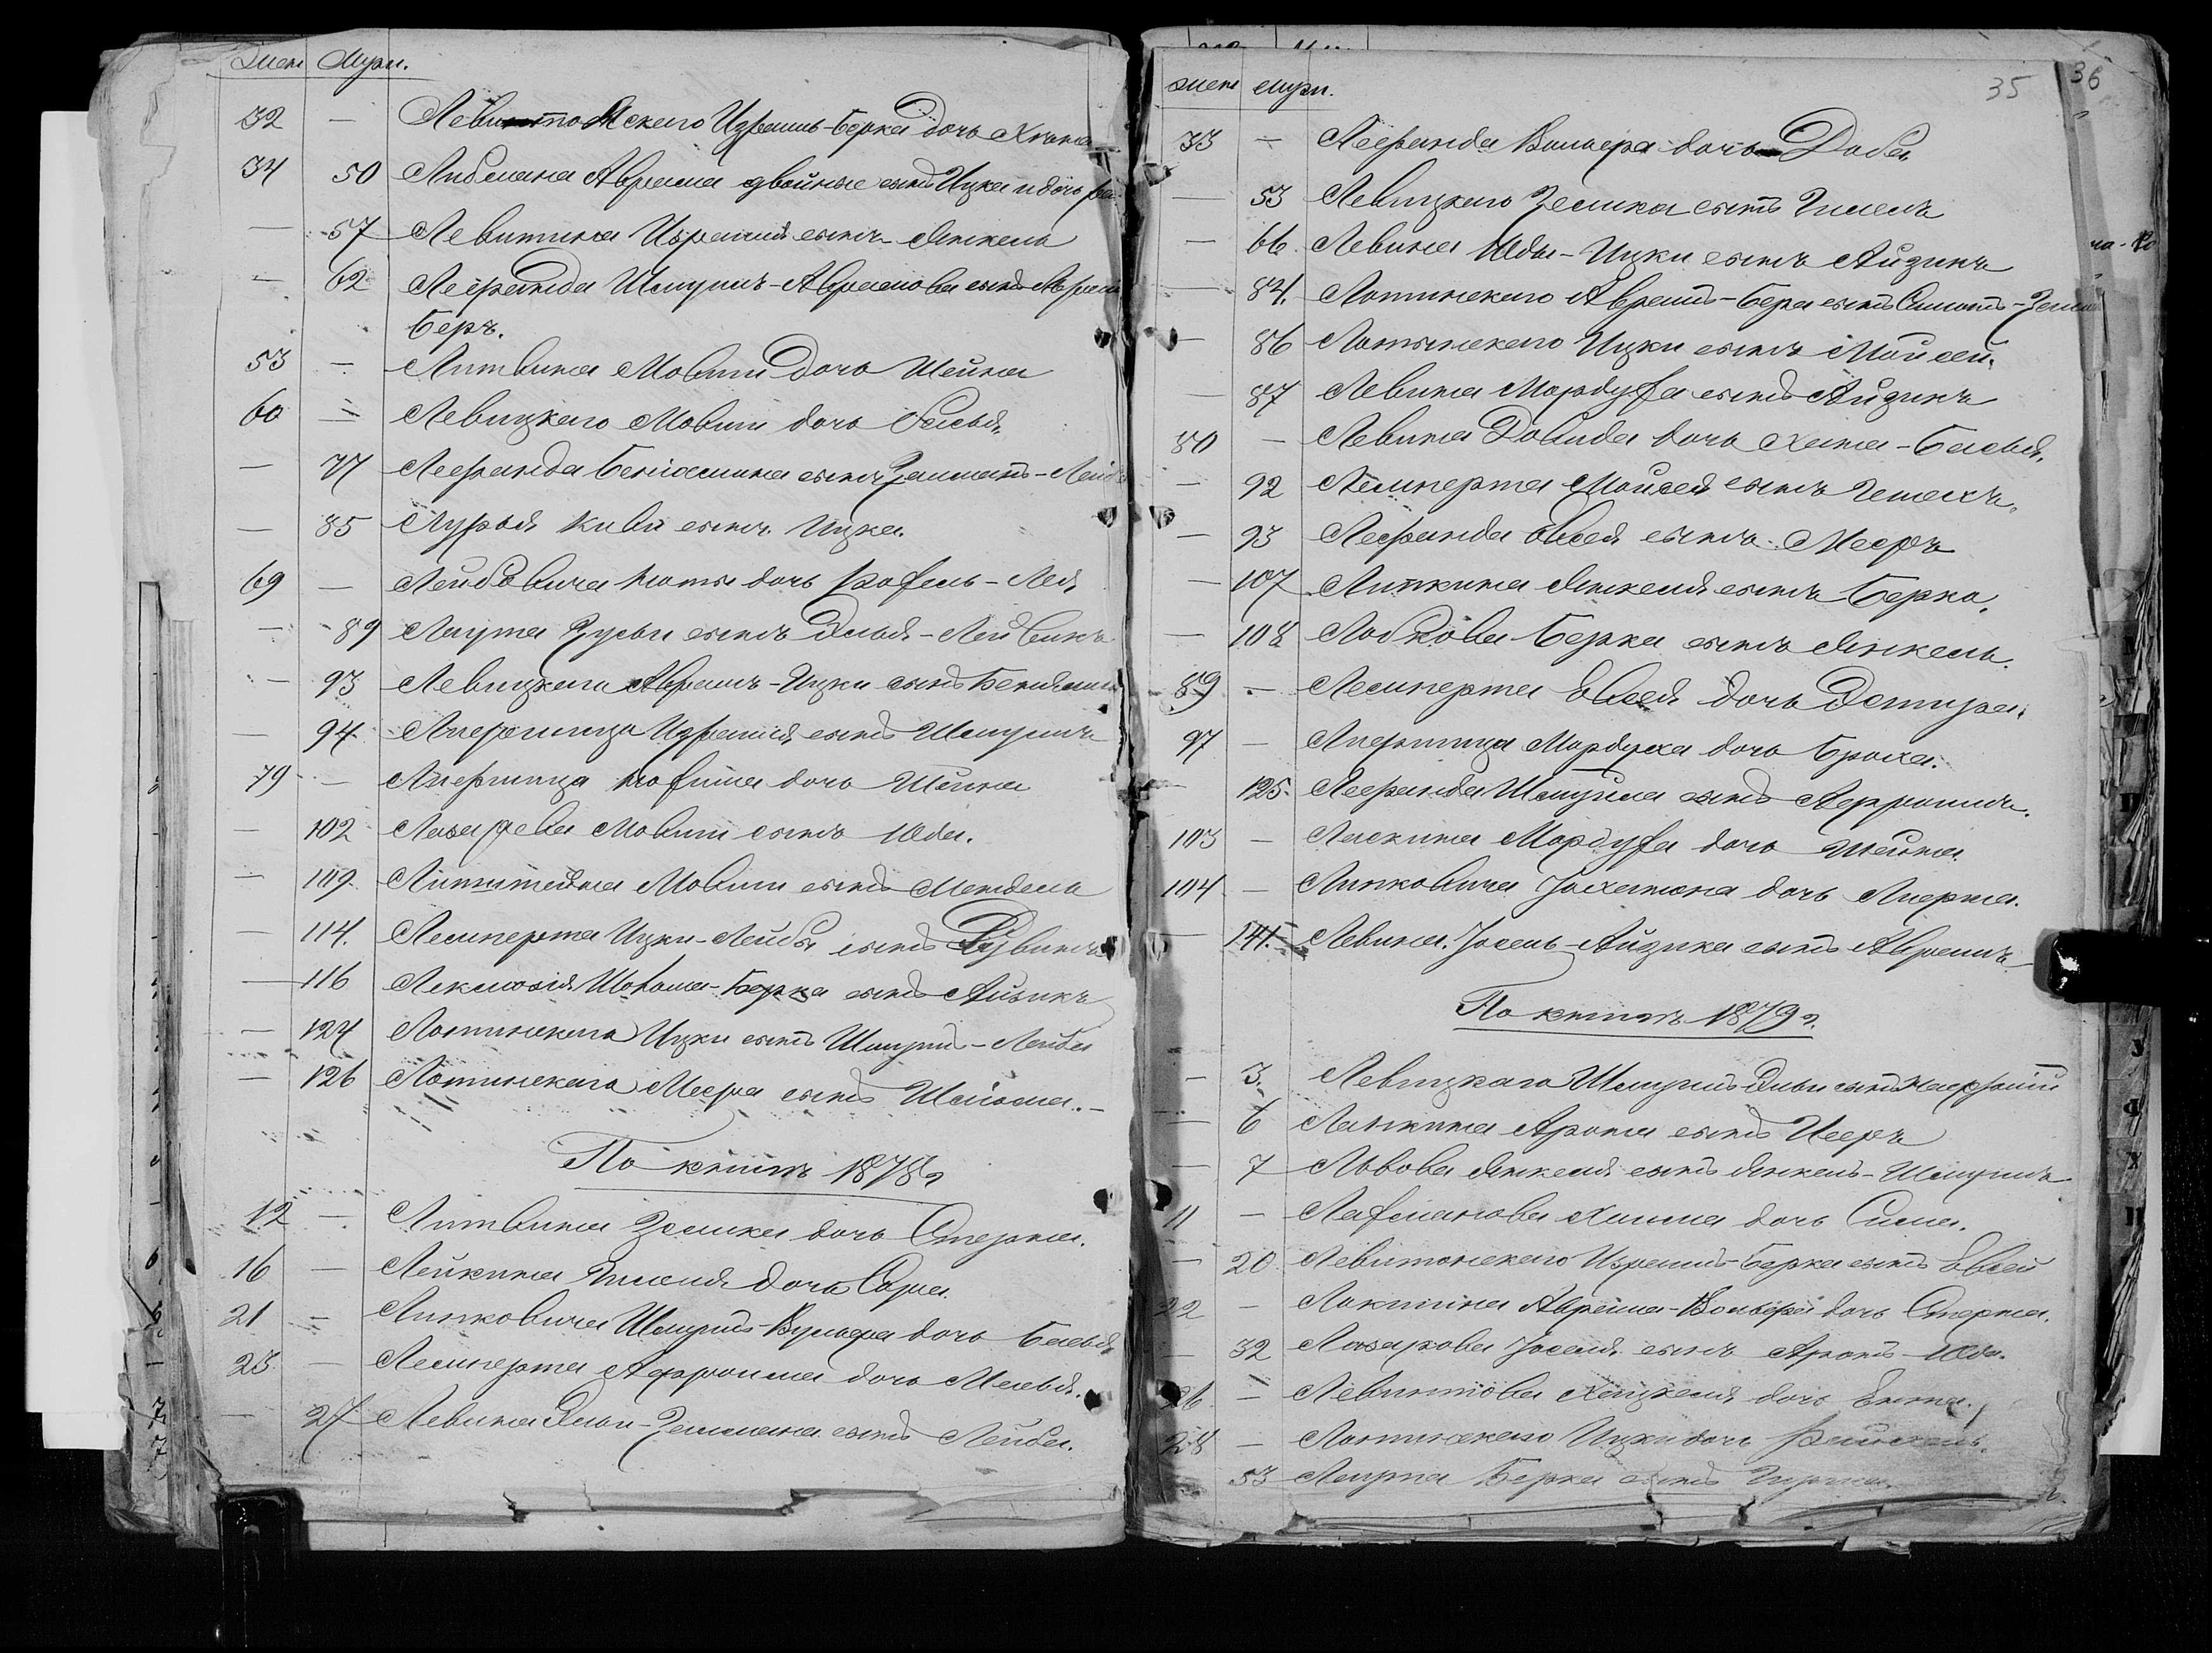 Жен Муж.
32 — Левинтонскаго Израиль-Берка дочь Хьена
34 50 Либмана Абрама двойные сынъ Ицка и дочь
— 57 Левитина Израиля сынъ Янкель
— 62 Лефранда Шмуилъ-Абрамова сынъ Абрамъ
Беръ.
53 — Литвина Мовши дочь Шейна
60 — Левицкаго Мовши дочь Басья
— 77 Лефранда Беніамина сынъ Залманъ-Лейба
— 85 Лурья Киви сынъ Ицка.
69 — Лейбовича Моты дочь Рохель-Лея
— 89 Ляута Зусьи сынъ Эльья-Лейвикъ
— 93 Левицкаго Абрамъ-Ицки сынъ Беньямин
— 94 Лифшица Израиля сынъ Шмуилъ
79 — Лифшица дочь Шейна
— 102 Лазарева Мовши сынъ Юда.
— 109 Литштейна Мовши сынъ Мендель
— 114. Лемперта Ицки-Лейбы сынъ Рувинъ
— 116 Шолома-Берка сынъ Айзикъ
— 124 Лотинскаго Ицки сынъ Шмуилъ-Лейба
— 126 Лотинскаго Меера сынъ Шлиома.—
По книгѣ 1878 г
12 — Литвина Зелика дочь Стерна.
16 — Лейкина Гилеля дочь Сора
21 — Липковича Шмуилъ-Вульфа дочь Басья
23 — Лемперта Афроима дочь Масья.
— 27 Левина Эльи-Залмана сынъ Лейба.
35 36
жен муж.
33 — Лефранда Вольфа дочь Доба
— 53 Левицкаго Зелика сынъ Гилель
— 66. Левина Юды-Ицки сынъ Айзикъ
— 84. Лотинскаго Абрамъ-Бера сынъ
— 86 Лотинскаго Ицки сынъ Мойсей.
— 87 Левина Мордуха сынъ Айзикъ
80 — Левина Довида дочь Хана-Басья.
— 92 Лемперта Мойсея сынъ
— 93 Лефранда Овсея сынъ Мееръ
— 107 Липкина Янкеля сынъ Берка.
— 108 Лобкова Берка сынъ Янкель.
89 — Лемперта Евсея дочь Эстира.
97 — Лифшица Мордуха дочь Броха.
— 125. Лефранда Шмуила сынъ Афроимъ.
103 — Ласкина Мордуха дочь Шейна.
104 — Липковича Іоханона дочь
— 141. Левина Іосель-Айзика сынъ Абрамъ
По книгѣ 1879 г.
— 3. Левицкаго Шмуилъ Эльи сынъ
— 6 Лапкина Арона сынъ Исеръ
— 7 Львова Янкеля сынъ Янкель-Шмуилъ
11 — Лахманова Хаима дочь Сима.
— 20. Левитонскаго Израиль-Берка сынъ Евсей
22 — Локшина Абрама-Вольфа дочь Стерна.
— 32 Лазарова Іоселя сынъ Аронъ-Юда.
26. — Левинтова Хацкеля дочь Ента.
28 — Лотинскаго Ицки дочь
— 53 Ляута Берка сынъ